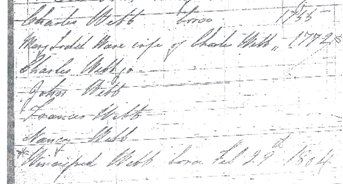 Charles Webb born 1755
Mary Webb wife of Charles Webb " 1772
Charles Webb Jr
John Webb
Frances Webb
Nancy Webb
Winnifred Webb born Feb 29th 1804